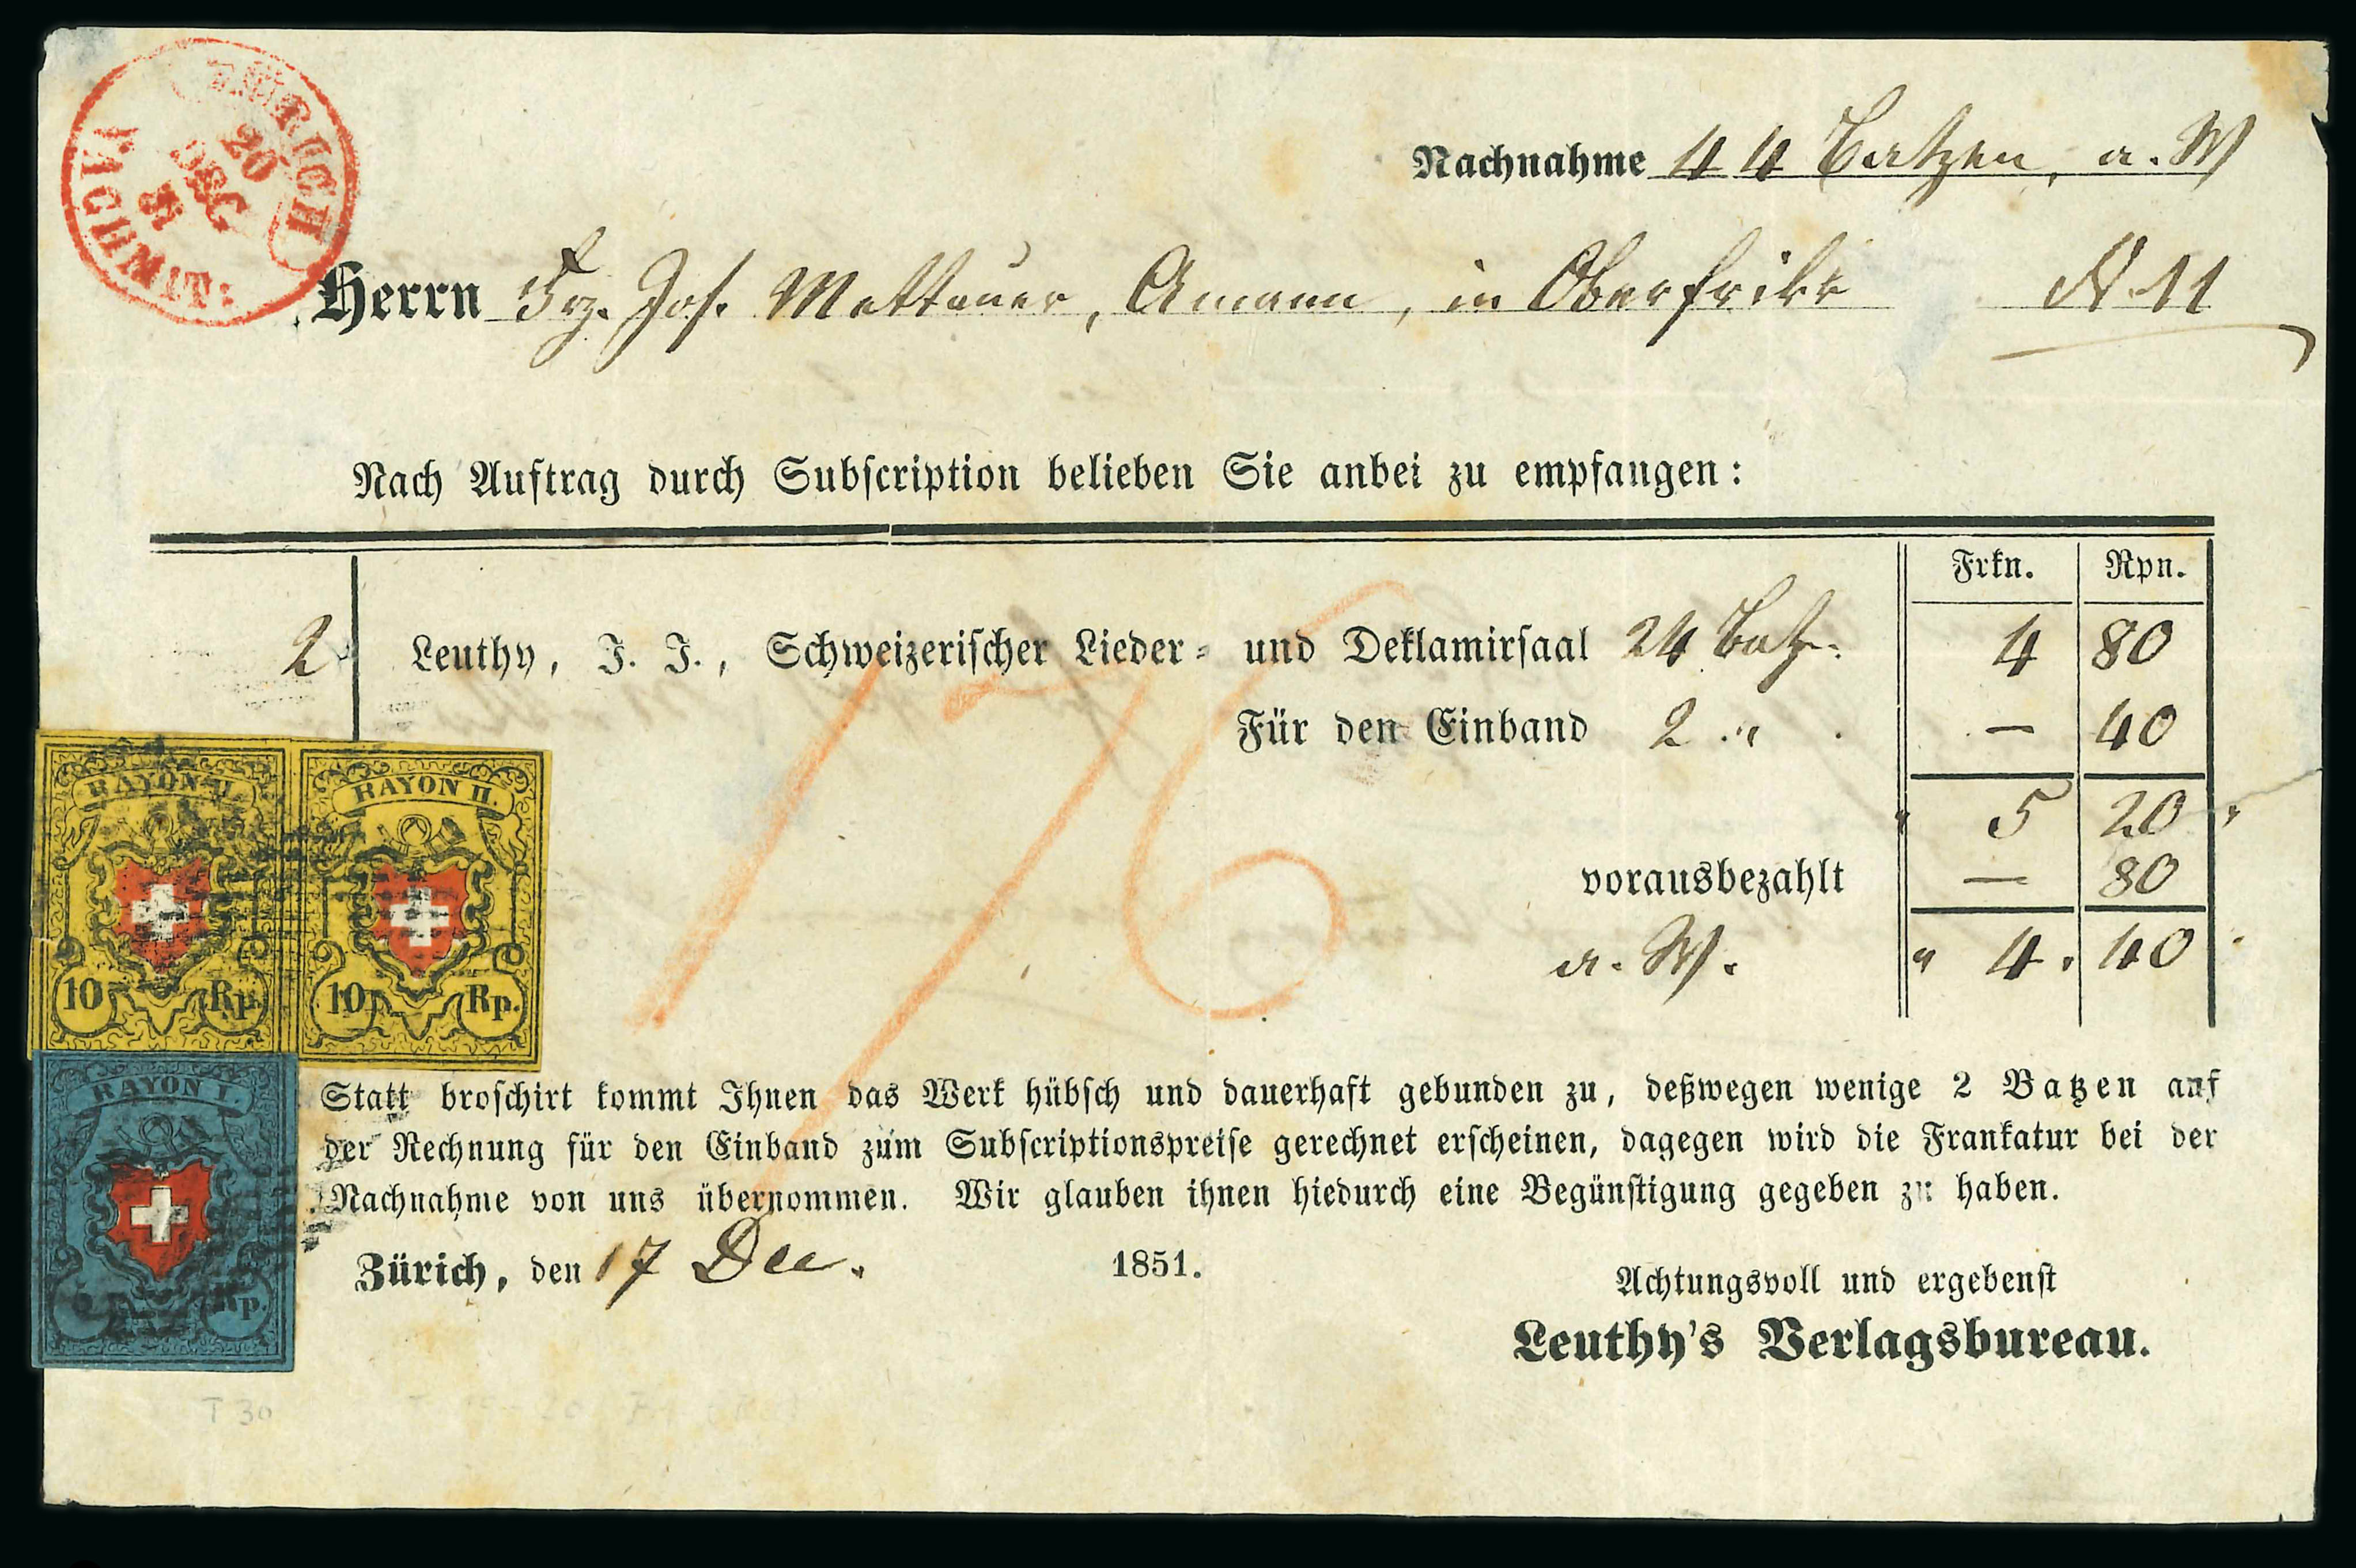 ZÜRICH
20
DEC
51
NACHMIT:
Nachnahme 44 Batzen, a. W
Herrn Frz. Jos. Mettauer, Amann, in Oberfrikk N 11
Nach Auftrag durch Subscription belieben Sie anbei zu empfangen:
Frkn. Rpn.
2 Leuthy, J. J., Schweizerischer Lieder= und Deklamirsaal 24 Batz. 4 80
Für den Einband 2 „ — 40
„ 5 20 „
vorausbezahlt — 80
a. W. „ 4. 40
176
RAYON II. RAYON II.
10 Rp. 10 Rp.
RAYON I.
Rp.
Statt broschirt kommt Ihnen das Werk hübsch und dauerhaft gebunden zu, deßwegen wenige 2 Batzen auf
der Rechnung für den Einband zum Subscriptionspreise gerechnet erscheinen, dagegen wird die Frankatur bei der
Nachnahme von uns übernommen. Wir glauben ihnen hiedurch eine Begünstigung gegeben zu haben.
Zürich, den 17 Dec. 1851.
Achtungsvoll und ergebenst
Leuthy's Verlagsbureau.
T 30